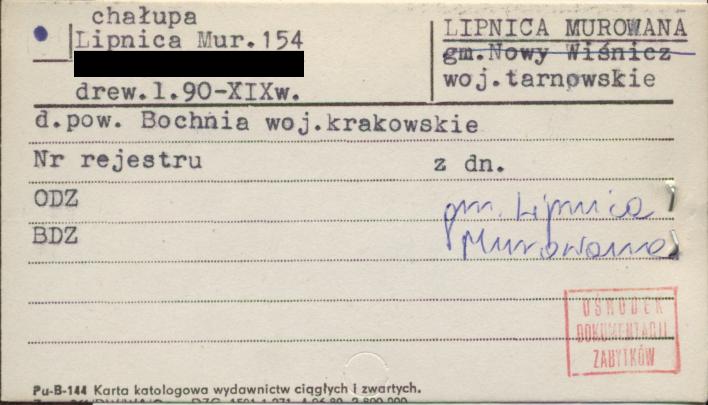 chałupa
Lipnica Mur.154
drew.l.90-XIXw.
LIPNICA MUROWANA
gm.Nowy Wiśnicz
woj.tarnowskie
d.pow. Bochnia woj.krakowskie
Nr rejestru z dn.
ODZ
BDZ
gm. Lipnica
Murowana
OŚRODEK
DOKUMENTACJI
ZABYTKÓW
Pu-B-144 Karta katologowa wydawnictw ciągłych i zwartych.